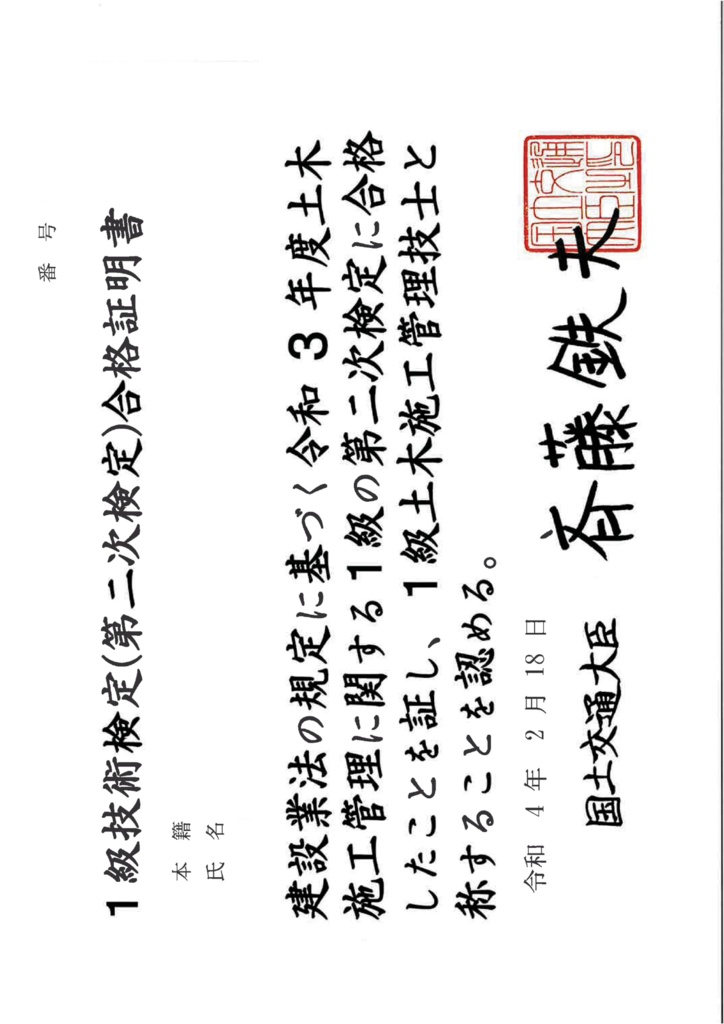 番 号
1級技術検定(第二次検定)合格証明書
本 籍
氏 名
建設業法の規定に基づく令和3年度土木
施工管理に関する1級の第二次検定に合格
したことを証し、1級土木施工管理技士と
称することを認める。
令和 4 年 2 月 18 日
国土交通大臣 斉藤鉄夫